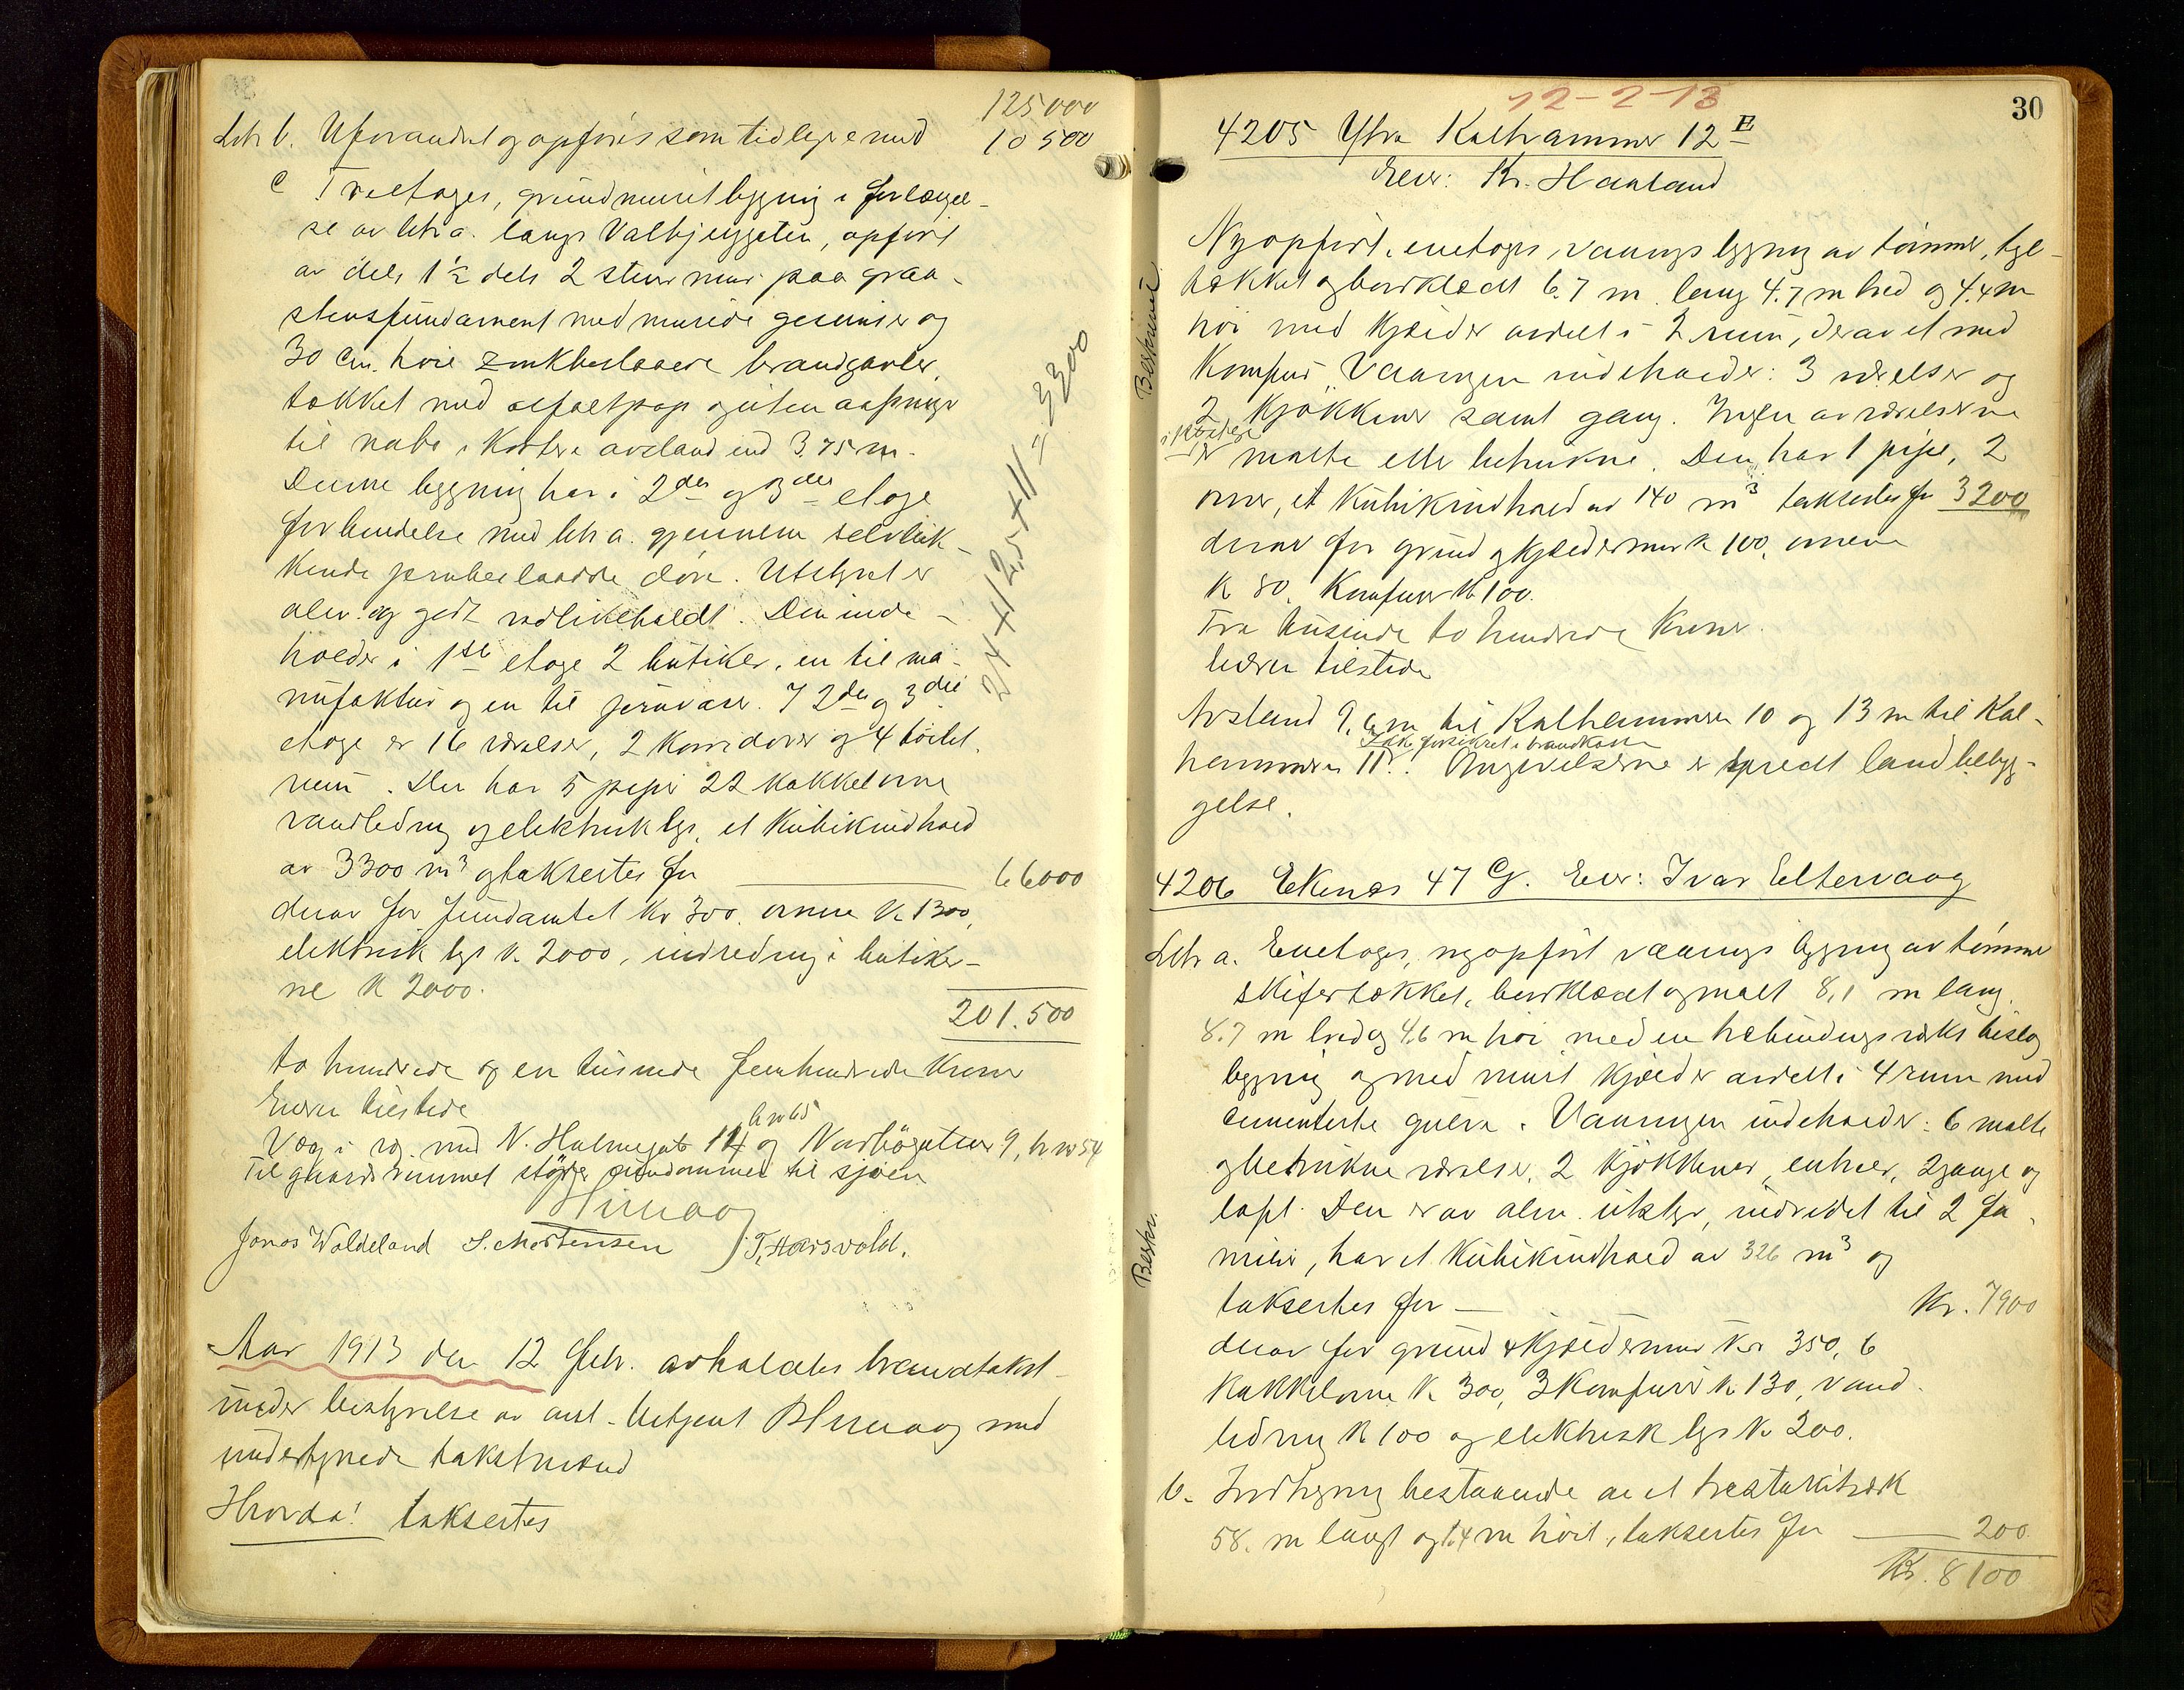 125000
Litr b. Uforandret og opføres som tidligere med 10500
c Treetages, grundmuret bygning i forlængel-
se av litr a. langs Valbjerggaten, opført
av dels 1½ dels 2 stens mur paa graa-
stensfundament med murede gesimser og
30 cm. høie zinkbeslaaede brandgavler,
tækket med asfaltpap og uten aapninger
til nabo i kortere avstand end 3,75 m.
Denne bygning har i 2den og 3die etage
forbindelse med litr a. gjennem selvluk-
kende jernbeslaadde døre. Utstyret er
alm. og godt vedlikeholdt. Den inde-
holder i 1ste etage 2 butiker, en til ma-
nufaktur og en til jernvarer. I 2den og 3die
etage er 16 værelser, 2 korridorer og 4 toilet-
rum. Den har 5 piper 22 kakkelovne
vandledning og elektrisk lys, et kubikindhold
av 3300 m³ og takseres for 66000
derav for fundamtet Kr 300. ovnene Kr 1300,
elektrisk lys Kr. 2000, indredning i butiker-
ne Kr 2000.
201.500
to hundrede og en tusinde femhundrede Kroner
Eieren tilstede
Væg i væg med N. Holmegate 14 br no 65 og Nordbøgaten 9, br no 54
Til gaardsrummet støter eiendommen til sjøen
24 × 12,5 × 11 = 3300
Jonas Woldeland S. Mortensen T. Haarsvold.
Aar 1913 den 12 Febr. avholdtes brandtakst
under bestyrelse av aut. betjent med
undertegnede takstmænd
Hvorda! takseres
30
12-2-13
4205 Ytre Kalhammer 12 E
Eier: Kr. Haaland
Beskrevet
Nyopført, enetages, vaanings bygning av tømmer, tegl-
tækket og bordklædt 6.7 m. lang 4.7 m bred og 4.4 m
høi med kjælder avdelt i 2 rum, derav et med
Komfur. Vaaningen indeholder: 3 værelser og
2 kjøkkener samt gang. Ingen av værelserne
er malte eller betrukne. Den har 1 pipe, 2
ovner, et kubikindhold av 140 m³ takseres for 3200
derav for grund og kjældermur Kr 100, ovnene
Kr 80, Komfurer Kr 100.
Tre tusinde to hundrede Kroner.
Eieren tilstede
Avstand 9,6 m til Kalhammeren 10 og 13 m til Kal-
Ikke forsikret i brandkassen
hammeren 11. Omgivelserne er spredt landbebyg-
gelse.
4206 Ekenæs 47 G. Eier: Ivar Eltervaag
Beskr.
Litr a. Enetages, nyopført vaanings bygning av tømmer
skifertækket, bordklædt og malt 8,1 m lang.
8.7 m bred og 4,6 m høi med en halvindbygget bislag
bygning og med muret kjælder avdelt i 4 rum med
cementerte gulve. Vaaningen indeholder: 6 malte
og betrukne værelser, 2 kjøkkener, entree, 2 gange og
loft. Den er av alm. utstyr, indredet til 2 fa-
milier, har et kubikindhold av 326 m³ og
takseres for — Kr. 7900
derav for grund & kjældermur Kr. 350, 6
kakkelovne Kr 300, 3 Komfurer Kr 130, vand-
ledning Kr 100 og elektrisk lys Kr 200.
b. Indhegning bestaaende av et træstakitværk
58. m langt og 1.4 m høit, takseres for 200
Kr. 8100